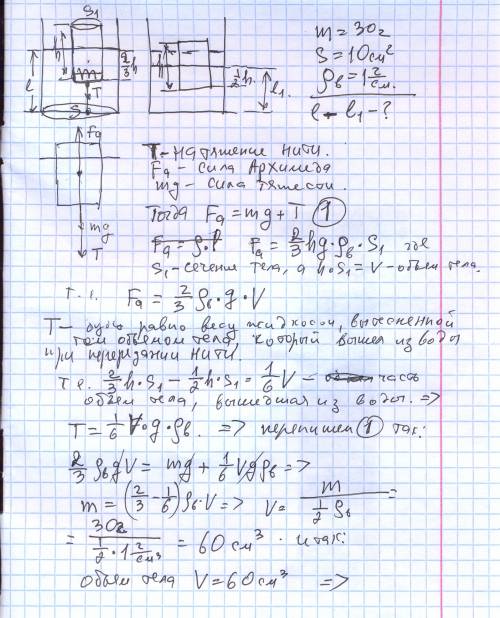 S₁
m = 30г
S = 10см²
ρв = 1 г/см.
l - l₁ - ?
h
2/3 h
l
T
S
h
1/2 h
l₁
Fa
mg
T
T - натяжение нити.
Fa - сила Архимеда
mg - сила тяжести.
Тогда Fa = mg + T (1)
Fa = 2/3 hg·ρв·S₁ где
S₁ - сечение тела, а h·S₁ = V - объем тела.
т.е. Fa = 2/3 ρв·g·V
T - будет равно весу жидкости, вытесненной
тем объемом тела, который вышел из воды
при перерезании нити.
т.е. 2/3 h·S₁ - 1/2 h·S₁ = 1/6 V - часть
объем тела, вышедшая из воды. =>
T = 1/6 V·g·ρв. => перепишем (1) так:
2/3 ρвgV = mg + 1/6 Vgρв =>
m = (2/3 - 1/6) ρв·V => V = m / (1/2 ρв) =
= 30г / (1/2 · 1 г/см³) = 60 см³. итак:
объем тела V = 60см³ =>